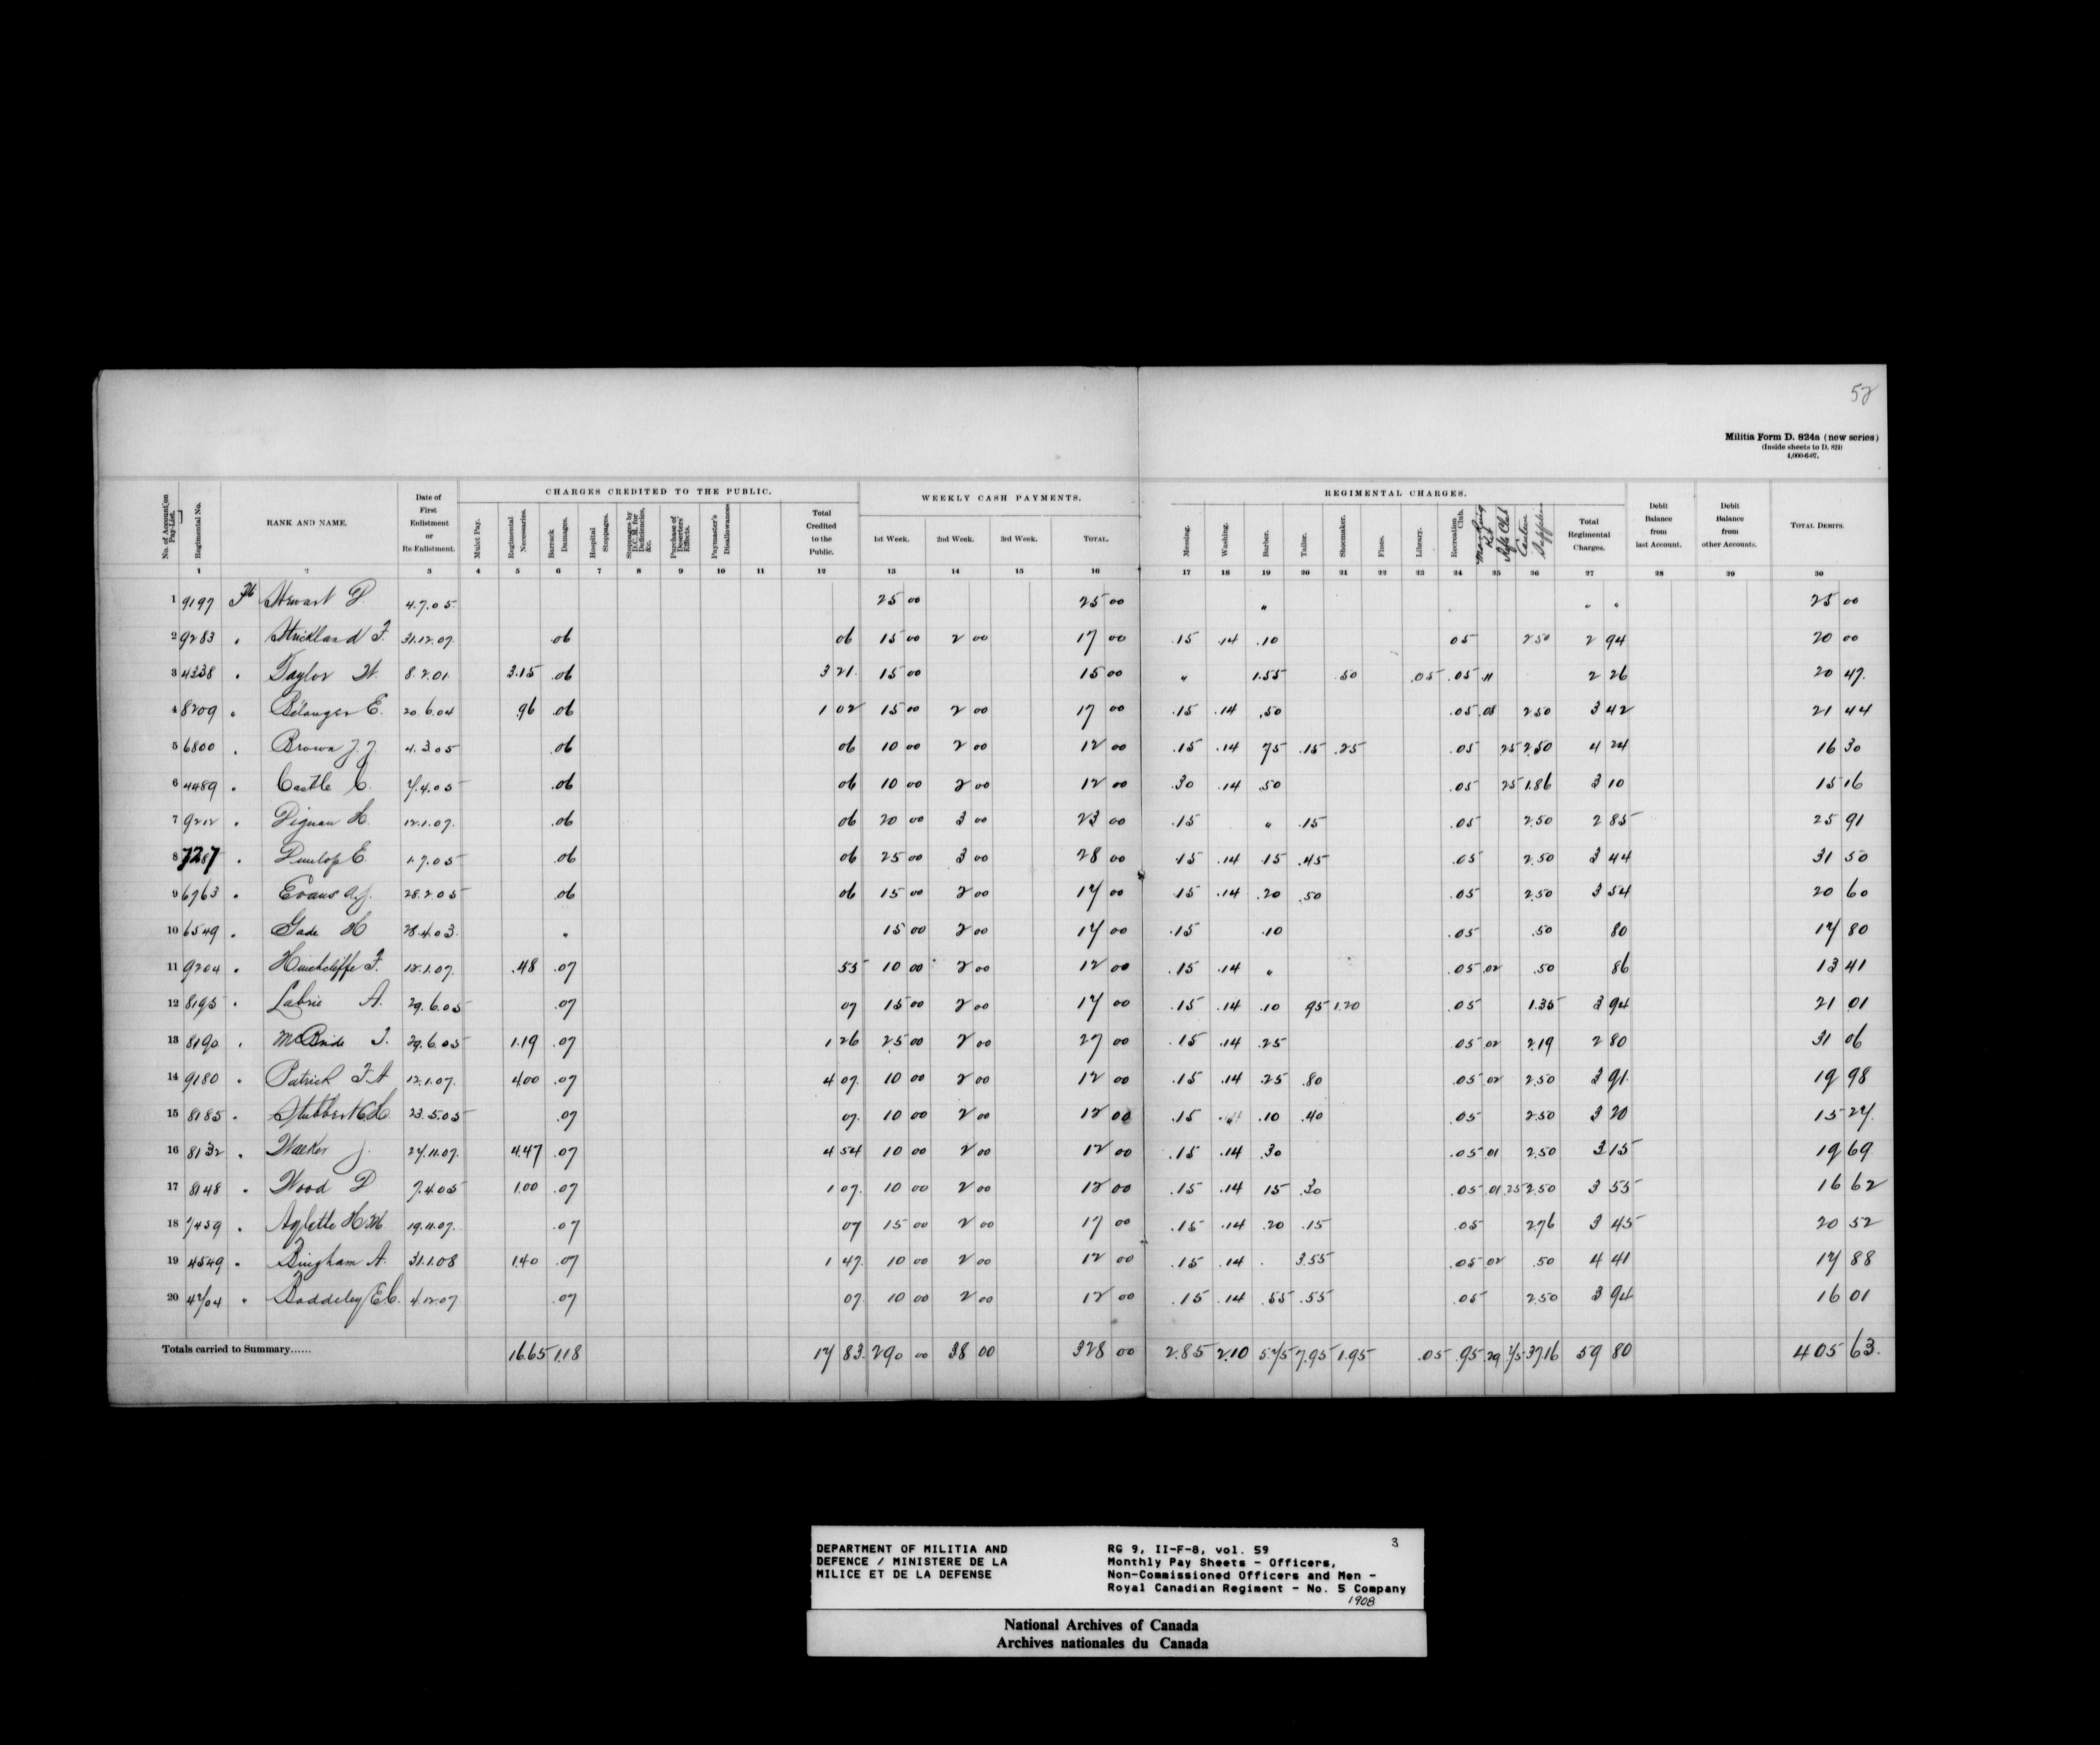 52
Militia Form D. 824a (new series)
(Inside sheets to D. 824)
4,000-6-07.
CHARGES CREDITED TO THE PUBLIC. WEEKLY CASH PAYMENTS. REGIMENTAL CHARGES.
No. of Account on Pay-List. Regimental No. RANK AND NAME. Date of First Enlistment or Re-Enlistment. Mulct Pay. Regimental Necessaries. Barrack Damages. Hospital Stoppages. Stoppages by D.C.M. for Deficiencies, &c. Purchase of Deserters' Effects. Paymaster's Disallowances Total Credited to the Public. 1st Week. 2nd Week. 3rd Week. TOTAL. Messing. Washing. Barber. Tailor. Shoemaker. Fines. Library. Recreation Club. Marking Kit Rifle Club Canteen Supplies Total Regimental Charges. Debit Balance from last Account. Debit Balance from other Accounts. TOTAL DEBITS.
1 2 3 4 5 6 7 8 9 10 11 12 13 14 15 16 17 18 19 20 21 22 23 24 25 26 27 28 29 30
1 9197 Pte Stewart D. 4.7.05 25 00 25 00 " " " 25 00
2 9283 " Strickland F. 31.12.07 .06 06 15 00 2 00 17 00 .15 .14 .10 05 2 50 2 94 20 00
3 4338 " Taylor W. 8.2.01 3.15 .06 3 21 15 00 15 00 " 1.55 .50 .05 .05 .11 2 26 20 47
4 8209 " Bélanger E. 20.6.04 .96 .06 1 02 15 00 2 00 17 00 .15 .14 .50 .05 .08 2.50 3 42 21 44
5 6800 " Brown J. J. 4.3.05 .06 06 10 00 2 00 12 00 .15 .14 75 .15 .25 .05 25 2.50 4 24 16 30
6 4489 " Castle C. 7.4.05 .06 06 10 00 2 00 12 00 .30 .14 .50 .05 25 1.86 3 10 15 16
7 9212 " Dignan H. 12.1.07. .06 06 20 00 3 00 23 00 .15 " .15 .05 2.50 2 85 25 91
8 7287 " Dunlop E. 1.7.05 .06 06 25 00 3 00 28 00 .15 .14 .15 .45 .05 2.50 3 44 31 50
9 6763 " Evans A.J. 28.2.05 .06 06 15 00 2 00 17 00 .15 .14 .20 .50 .05 2.50 3 54 20 60
10 6549 " Gade H 28.4.03 " 15 00 2 00 17 00 .15 .10 .05 .50 80 17 80
11 9204 " Hinchcliffe F. 12.1.07. .48 .07 55 10 00 2 00 12 00 .15 .14 " .05 .02 .50 86 13 41
12 8195 " Labrie A. 29.6.05 .07 07 15 00 2 00 17 00 .15 .14 .10 95 1.20 .05 1.35 3 94 21 01
13 8190 " McBride J. 29.6.05 1.19 .07 1 26 25 00 2 00 27 00 .15 .14 .25 .05 .02 2.19 2 80 31 06
14 9180 " Patrick F A 12.1.07. 4.00 .07 4 07 10 00 2 00 12 00 .15 .14 .25 .80 .05 .02 2.50 3 91 19 98
15 8185 " Stubbert 23.5.05 .07 07 10 00 2 00 12 00 .15 .10 .40 .05 2.50 3 20 15 27
16 8132 " Walker J. 27.11.07. 4.47 .07 4 54 10 00 2 00 12 00 .15 .14 .30 .05 01 2.50 3 15 19 69
17 8148 " Wood D 7.4.05 1.00 .07 1 07 10 00 2 00 12 00 .15 .14 15 .30 .05 .01 .25 2.50 3 55 16 62
18 7459 " Aylette H.M 19.11.07. .07 07 15 00 2 00 17 00 .15 .14 .20 .15 .05 2.76 3 45 20 52
19 4549 " Bingham A. 31.1.08 1.40 .07 1 47 10 00 2 00 12 00 .15 .14 . 3.55 .05 .02 .50 4 41 17 88
20 4704 " Baddeley E.C. 4.12.07 .07 07 10 00 2 00 12 00 .15 .14 .55 .55 .05 2.50 3 94 16 01
Totals carried to Summary...... 16.65 1.18 17 83 290 00 38 00 328 00 2.85 2.10 5.75 7.95 1.95 .05 .95 .29 75 37.16 59 80 405 63.
3
DEPARTMENT OF MILITIA AND
DEFENCE / MINISTERE DE LA
MILICE ET DE LA DEFENSE
RG 9, II-F-8, vol. 59
Monthly Pay Sheets - Officers,
Non-Commissioned Officers and Men -
Royal Canadian Regiment - No. 5 Company
1908
National Archives of Canada
Archives nationales du Canada